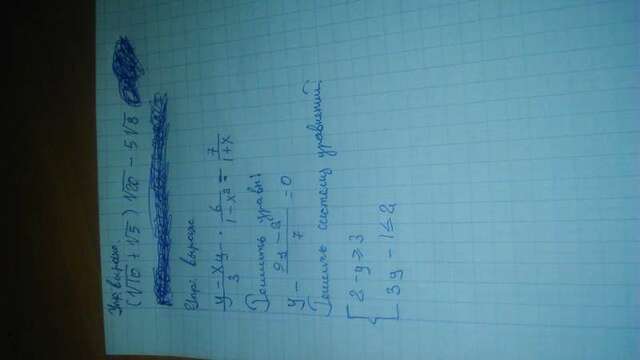 Упр. выраж.
(√10 + √5) √20 - 5√8
Упр: выраже
(y - xy)/3 · 6/(1 - x²) = 7/(1+x)
Решить уравн:
y - (9y - 2)/7 = 0
Решить систему уравнений
{ 2 - y ≥ 3
3y - 1 ≤ 2